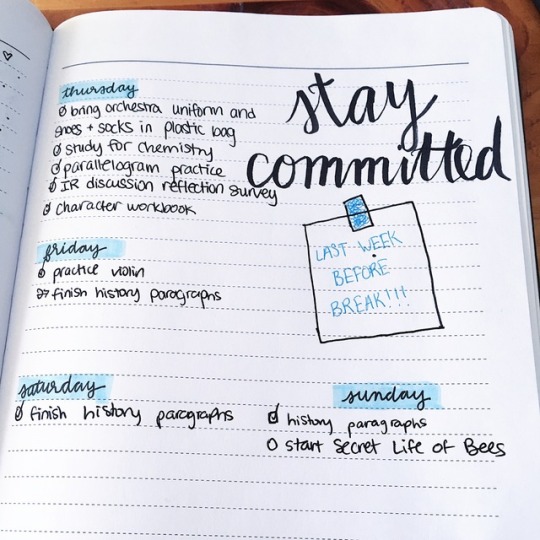 thursday
bring orchestra uniform and
shoes + socks in plastic bag
study for chemistry
parallelogram practice
IR discussion reflection survey
character workbook
stay
committed
friday
practice violin
finish history paragraphs
LAST WEEK
BEFORE
BREAK!!!
saturday
finish history paragraphs
sunday
history paragraphs
start Secret Life of Bees